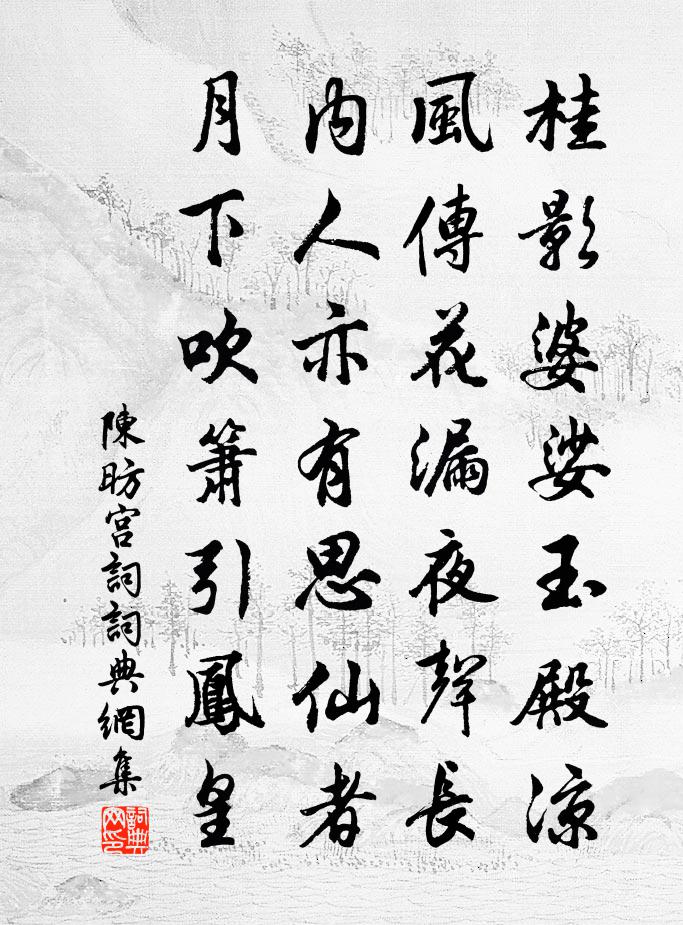 桂影婆娑玉殿涼
風傳花漏夜聲長
內人亦有思仙者
月下吹簫引鳳皇
陳昉宮詞詞典網集
詞典网印